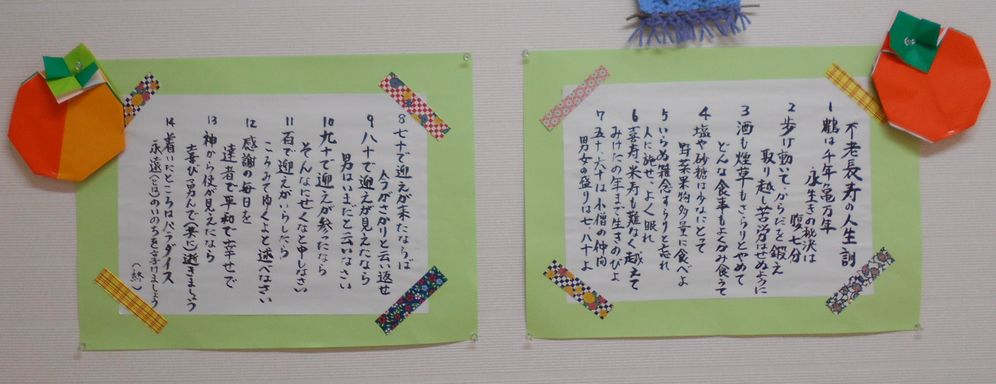 不老長寿の人生訓
1 鶴は千年、亀万年
永生きの秘決は
腹七分
2 歩け動いてからだを鍛え
取り越し苦労はせぬように
3 酒も煙草もさらりとやめて
どんな食事もよくかみ食うて
4 塩や砂糖は少なにとて
野菜果物多量に食べよ
5 いらぬ雑念すらりと忘れ
人に施せ、よく眠れ
6 喜寿、米寿も難なく越えて
みけたの年まで生きのびよ
7 五十、六十は小僧の仲間
男女の盛りは七、八十よ
8 七十で迎えが来たならば
今さかりと云い返せ
9 八十で迎えが見えたなら
男はいまだと云いなさい
10 九十で迎えが参たなら
そんなにせくなと申しなさい
11 百で迎えがいらしたら
ころみてゆくよと述べなさい
12 感謝の毎日を
達者で平和で幸せで
13 神から使が見えたなら
喜び勇んで楽に逝きましょう
14 着いたところはパラダイス
永遠(とは)のいのちを享けましょう
(終)